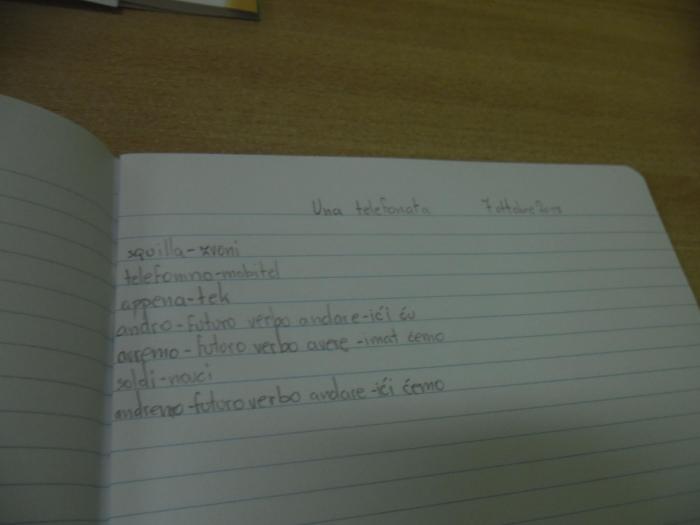 Una telefonata 7 ottobre
squilla-zvoni
telefonino-mobitel
appena-tek
andro-futuro verbo andare-ići ću
avremo-futuro verbo avere-imat ćemo
soldi-novci
andremo-futuro verbo andare-ići ćemo